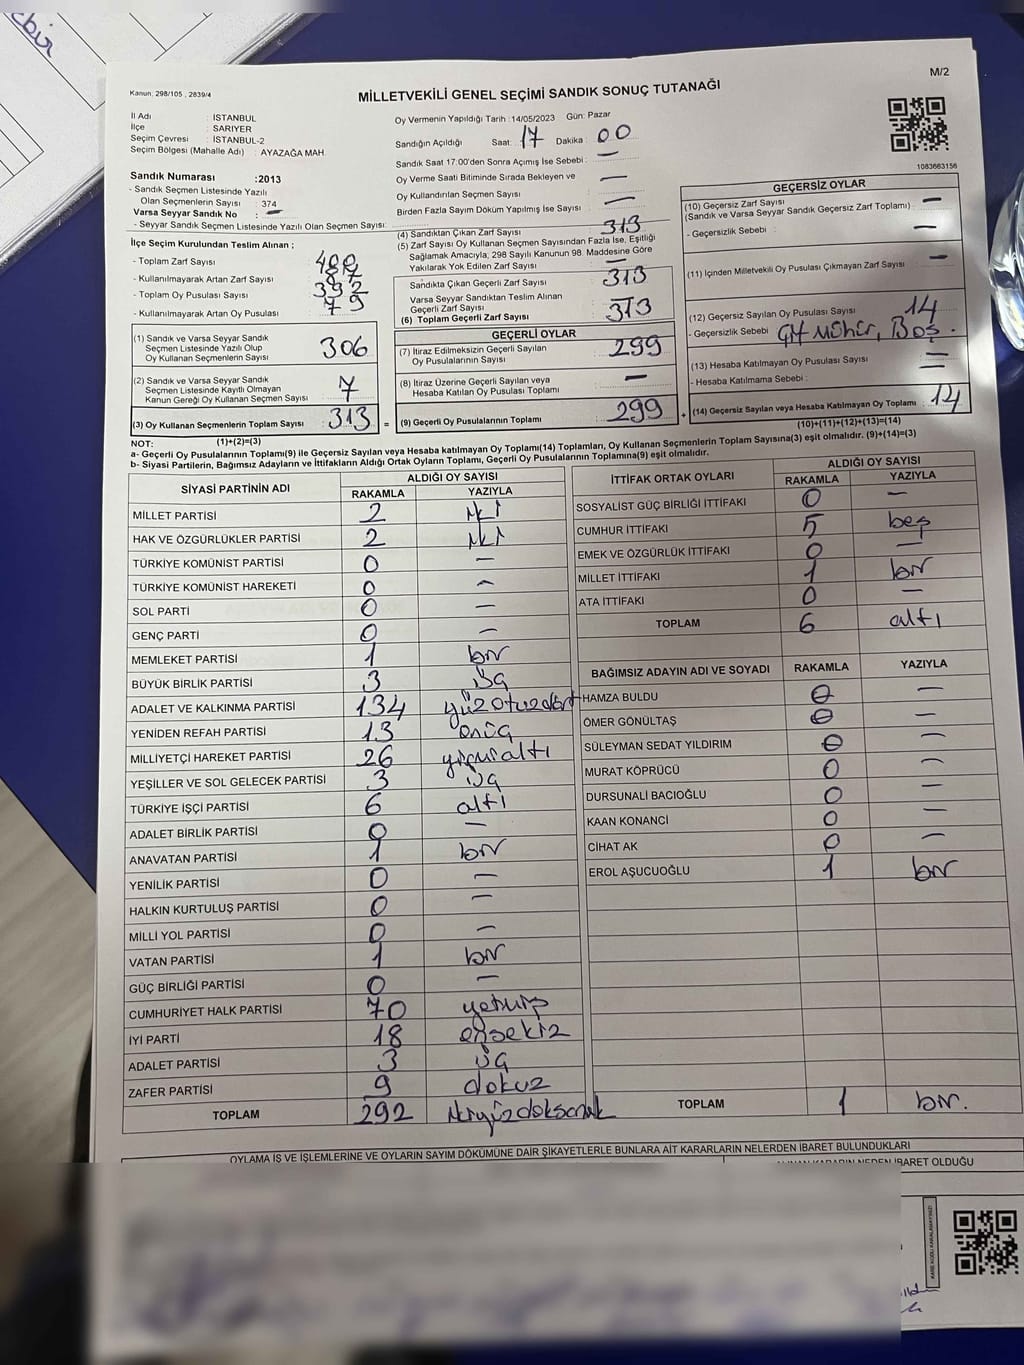 Kanun: 298/105 , 2839/4
MİLLETVEKİLİ GENEL SEÇİMİ SANDIK SONUÇ TUTANAĞI
M/2
İl Adı : İSTANBUL
İlçe : SARIYER
Seçim Çevresi : İSTANBUL-2
Seçim Bölgesi (Mahalle Adı) : AYAZAĞA MAH.
Sandık Numarası :2013
- Sandık Seçmen Listesinde Yazılı
Olan Seçmenlerin Sayısı : 374
Varsa Seyyar Sandık No : -
- Seyyar Sandık Seçmen Listesinde Yazılı Olan Seçmen Sayısı:
Oy Vermenin Yapıldığı Tarih :14/05/2023 Gün: Pazar
Sandığın Açıldığı Saat: 17 Dakika: 00
Sandık Saat 17:00'den Sonra Açımış İse Sebebi : —
Oy Verme Saati Bitiminde Sırada Bekleyen ve
Oy Kullandırılan Seçmen Sayısı —
Birden Fazla Sayım Döküm Yapılmış İse Sayısı —
1083663156
İlçe Seçim Kurulundan Teslim Alınan ;
- Toplam Zarf Sayısı
- Kullanılmayarak Artan Zarf Sayısı
- Toplam Oy Pusulası Sayısı 392
- Kullanılmayarak Artan Oy Pusulası 79
(1) Sandık ve Varsa Seyyar Sandık
Seçmen Listesinde Yazılı Olup
Oy Kullanan Seçmenlerin Sayısı 306
(2) Sandık ve Varsa Seyyar Sandık
Seçmen Listesinde Kayıtlı Olmayan
Kanun Gereği Oy Kullanan Seçmen Sayısı 7
(3) Oy Kullanan Seçmenlerin Toplam Sayısı 313 =
(1)+(2)=(3)
(4) Sandıktan Çıkan Zarf Sayısı 313
(5) Zarf Sayısı Oy Kullanan Seçmen Sayısından Fazla İse, Eşitliği
Sağlamak Amacıyla, 298 Sayılı Kanunun 98. Maddesine Göre
Yakılarak Yok Edilen Zarf Sayısı —
Sandıkta Çıkan Geçerli Zarf Sayısı 313
Varsa Seyyar Sandıktan Teslim Alınan
Geçerli Zarf Sayısı
(6) Toplam Geçerli Zarf Sayısı 313
GEÇERLİ OYLAR
(7) İtiraz Edilmeksizin Geçerli Sayılan
Oy Pusulalarının Sayısı 299
(8) İtiraz Üzerine Geçerli Sayılan veya
Hesaba Katılan Oy Pusulası Toplamı —
(9) Geçerli Oy Pusulalarının Toplamı 299 +
GEÇERSİZ OYLAR
(10) Geçersiz Zarf Sayısı —
(Sandık ve Varsa Seyyar Sandık Geçersiz Zarf Toplamı)
- Geçersizlik Sebebi : —
(11) İçinden Milletvekili Oy Pusulası Çıkmayan Zarf Sayısı —
(12) Geçersiz Sayılan Oy Pusulası Sayısı 14
- Geçersizlik Sebebi : Çift Mühür, Boş.
(13) Hesaba Katılmayan Oy Pusulası Sayısı —
- Hesaba Katılmama Sebebi : —
(14) Geçersiz Sayılan veya Hesaba Katılmayan Oy Toplamı 14
(10)+(11)+(12)+(13)=(14)
NOT:
a- Geçerli Oy Pusulalarının Toplamı(9) ile Geçersiz Sayılan veya Hesaba katılmayan Oy Toplamı(14) Toplamları, Oy Kullanan Seçmenlerin Toplam Sayısına(3) eşit olmalıdır. (9)+(14)=(3)
b- Siyasi Partilerin, Bağımsız Adayların ve İttifakların Aldığı Ortak Oyların Toplamı, Geçerli Oy Pusulalarının Toplamına(9) eşit olmalıdır.
SİYASİ PARTİNİN ADI ALDIĞI OY SAYISI
RAKAMLA YAZIYLA
MİLLET PARTİSİ 2 iki
HAK VE ÖZGÜRLÜKLER PARTİSİ 2 iki
TÜRKİYE KOMÜNİST PARTİSİ 0 —
TÜRKİYE KOMÜNİST HAREKETİ 0 —
SOL PARTİ 0 —
GENÇ PARTİ 0 —
MEMLEKET PARTİSİ 1 bir
BÜYÜK BİRLİK PARTİSİ 3 üç
ADALET VE KALKINMA PARTİSİ 134 yüzotuzdört
YENİDEN REFAH PARTİSİ 13 onüç
MİLLİYETÇİ HAREKET PARTİSİ 26 yirmialtı
YEŞİLLER VE SOL GELECEK PARTİSİ 3 üç
TÜRKİYE İŞÇİ PARTİSİ 6 altı
ADALET BİRLİK PARTİSİ 0 —
ANAVATAN PARTİSİ 1 bir
YENİLİK PARTİSİ 0 —
HALKIN KURTULUŞ PARTİSİ 0 —
MİLLİ YOL PARTİSİ 0 —
VATAN PARTİSİ 1 bir
GÜÇ BİRLİĞİ PARTİSİ 0 —
CUMHURİYET HALK PARTİSİ 70 yetmiş
İYİ PARTİ 18 onsekiz
ADALET PARTİSİ 3 üç
ZAFER PARTİSİ 9 dokuz
TOPLAM 292
İTTİFAK ORTAK OYLARI ALDIĞI OY SAYISI
RAKAMLA YAZIYLA
SOSYALİST GÜÇ BİRLİĞİ İTTİFAKI 0 —
CUMHUR İTTİFAKI 5 beş
EMEK VE ÖZGÜRLÜK İTTİFAKI 0 —
MİLLET İTTİFAKI 1 bir
ATA İTTİFAKI 0 —
TOPLAM 6 altı
BAĞIMSIZ ADAYIN ADI VE SOYADI RAKAMLA YAZIYLA
HAMZA BULDU 0 —
ÖMER GÖNÜLTAŞ 0 —
SÜLEYMAN SEDAT YILDIRIM 0 —
MURAT KÖPRÜCÜ 0 —
DURSUNALİ BACIOĞLU 0 —
KAAN KONANCİ 0 —
CİHAT AK 0 —
EROL AŞUCUOĞLU 1 bir
TOPLAM 1 bir.
OYLAMA İŞ VE İŞLEMLERİNE VE OYLARIN SAYIM DÖKÜMÜNE DAİR ŞİKAYETLERLE BUNLARA AİT KARARLARIN NELERDEN İBARET BULUNDUKLARI
İBARET OLDUĞU